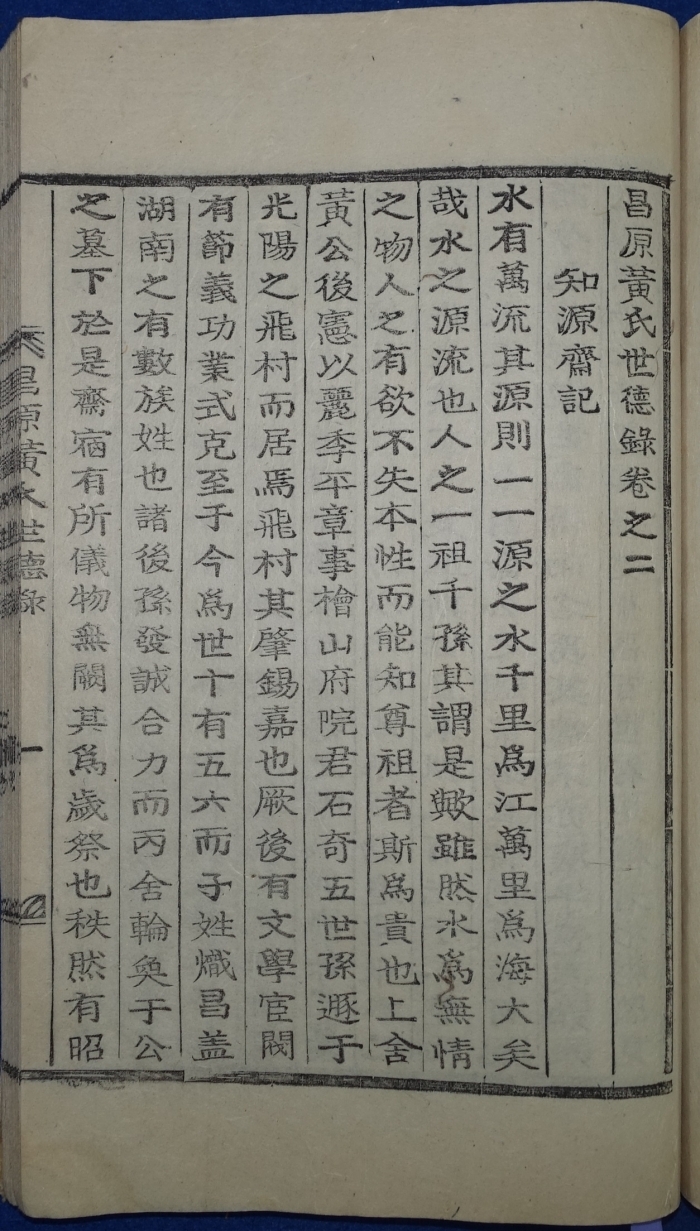 昌原黃氏世德錄卷之二
知源齋記
水有萬流其源則一一源之水千里爲江萬里爲海大矣
哉水之源流也人之一祖千孫其謂是歟雖然水爲無情
之物人之有欲不失本性而能知尊祖者斯爲貴也上舍
黃公後憲以麗季平章事檜山府院君石奇五世孫遯于
光陽之飛村而居焉飛村其肇錫嘉也厥後有文學宦閥
有節義功業式克至于今爲世十有五六而子姓熾昌盖
湖南之有數族姓也諸後孫發誠合力而丙舍輪奐于公
之墓下於是齋宿有所儀物無闕其爲歲祭也秩然有昭
昌原黃氏世德錄
一